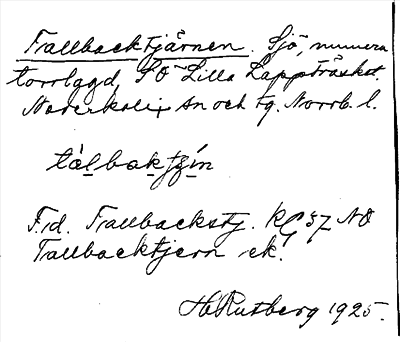 Tallbacktjärnen. Sjö, numera
torrlagd, SO Lilla Lappträsket.
Nederkalix sn och tg. Norrb. l.
tàlbaktjǽn
F.d. Tallbackstj. kG 37 NO
Tallbacktjern ek.
H. Rutberg 1925.